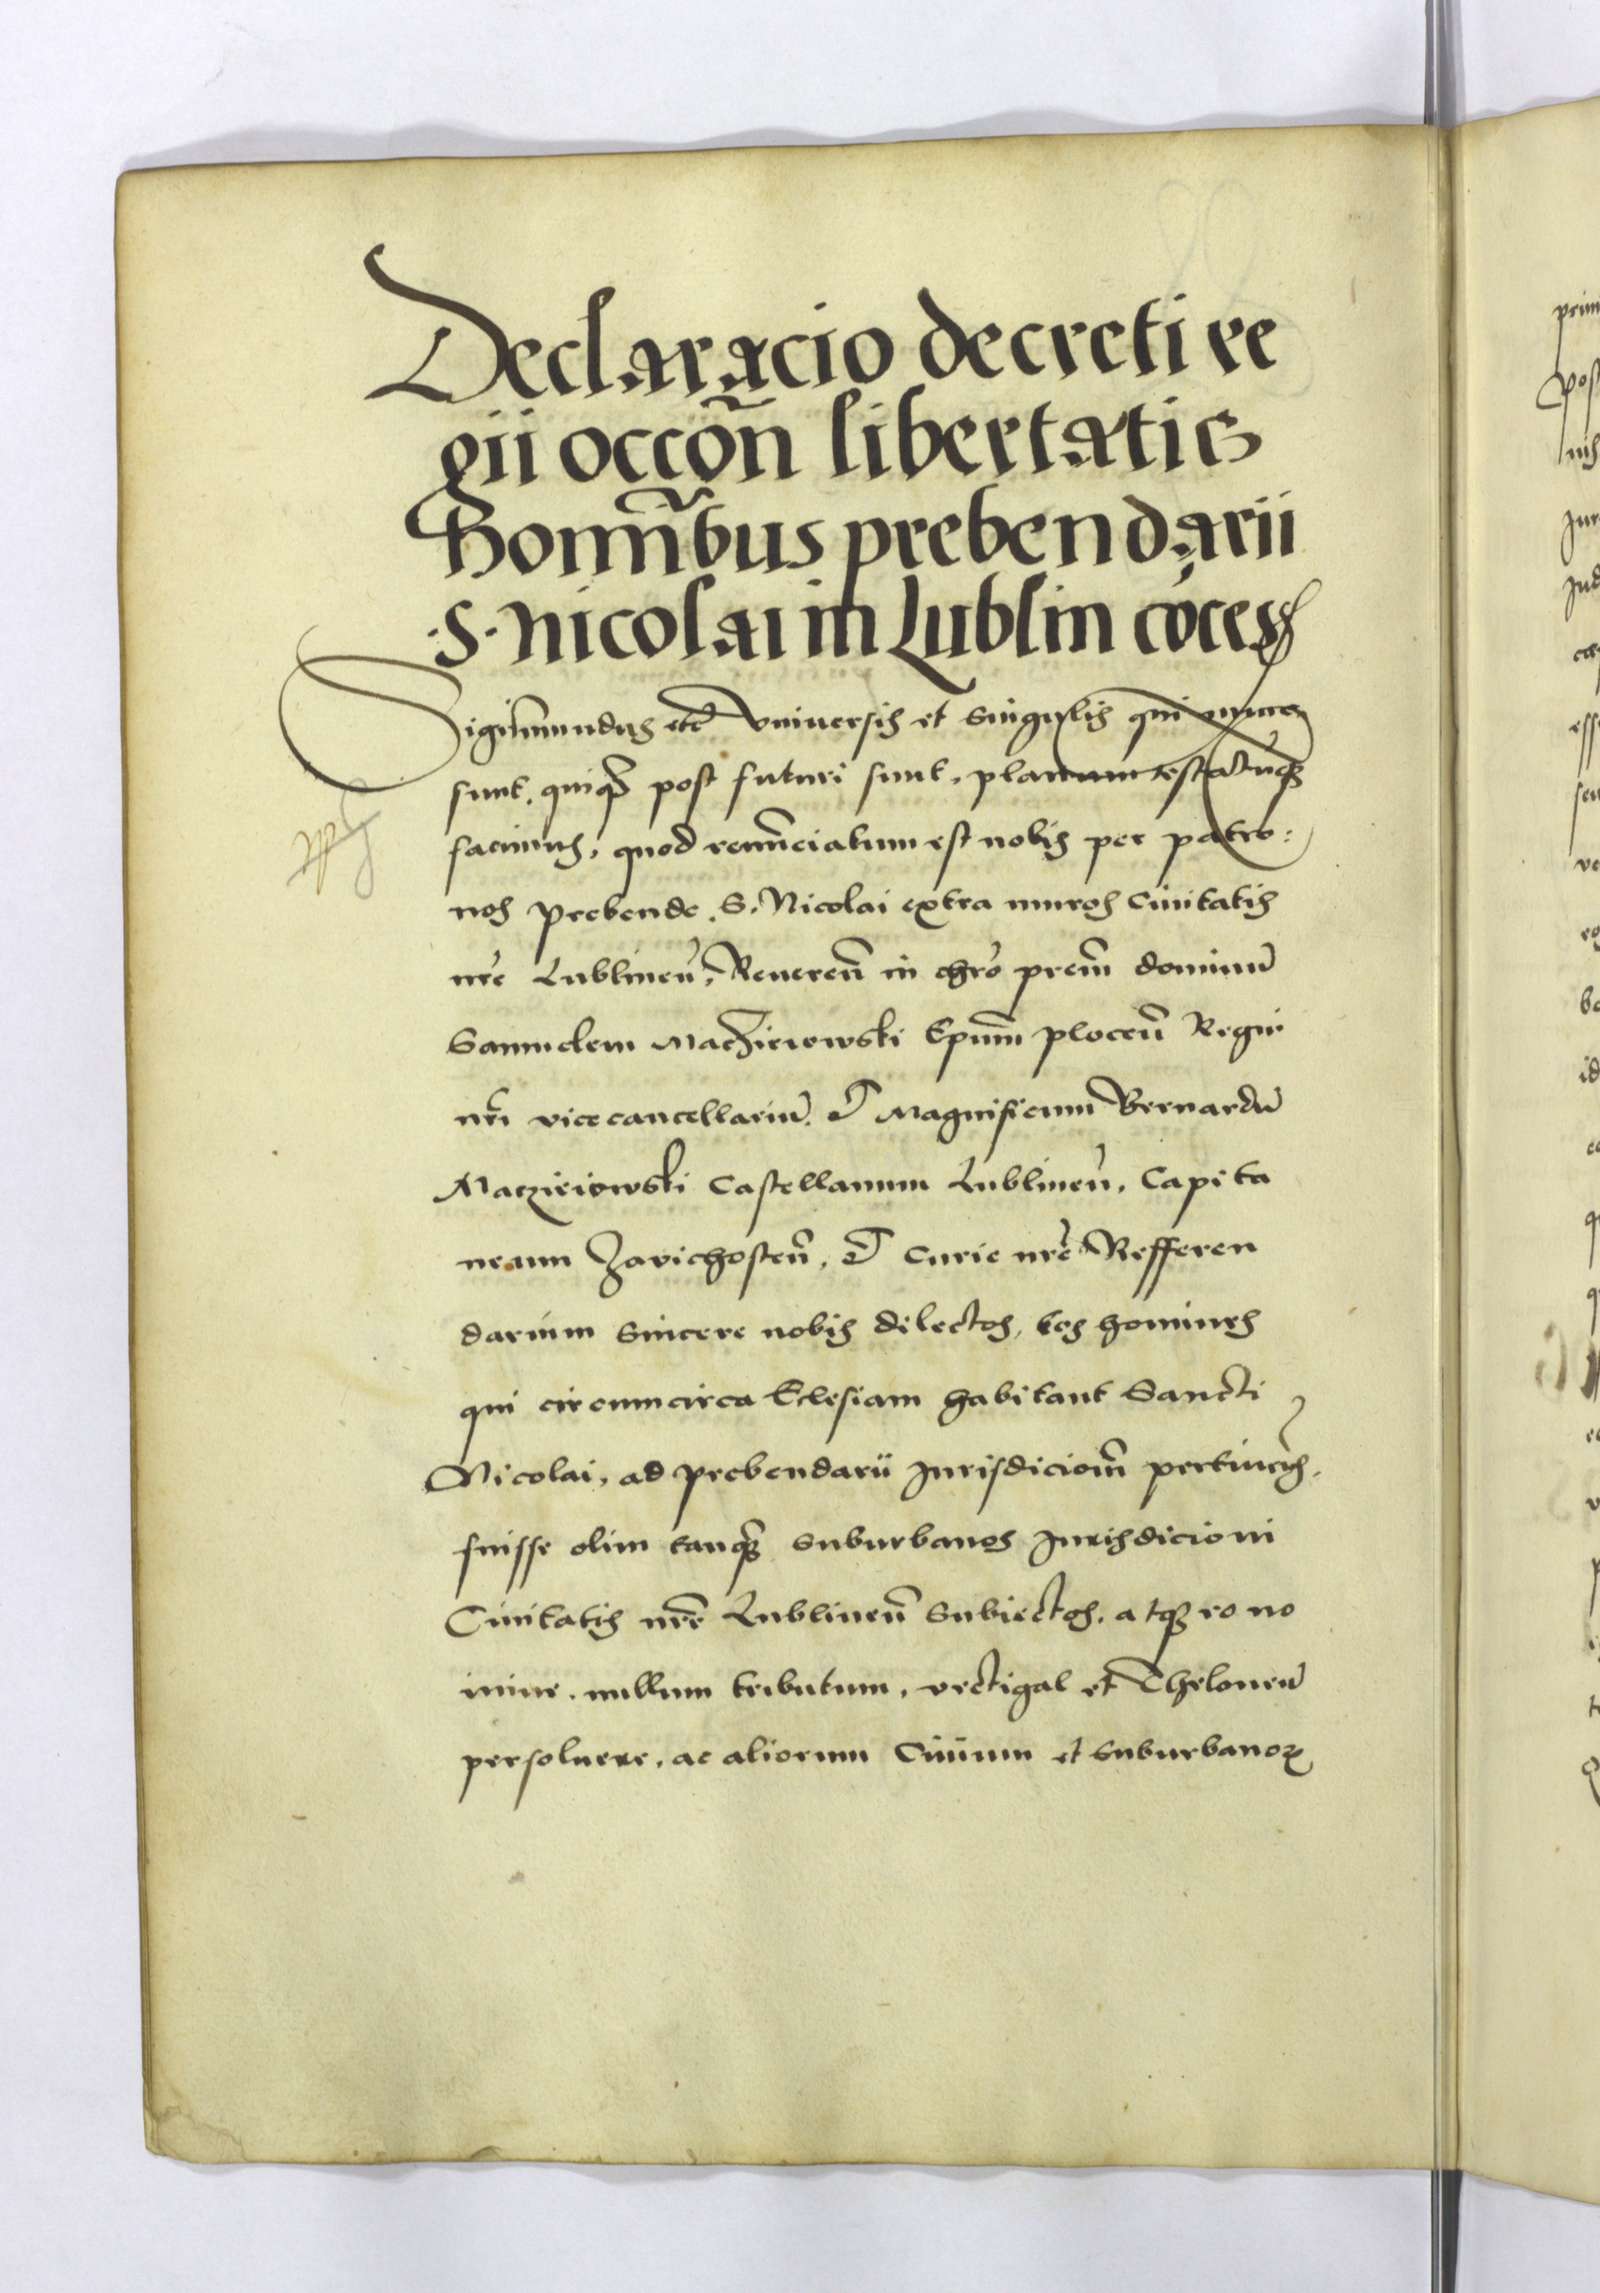 Declaracio decreti re
gii occõn libertatis
Homĩbus prebendarii
.S. Nicolai in Lublin cõcess
Sigismundus etc Vniuersis et singulis qui nunc
sunt, quiqȝ post futuri sunt, planum testatuqȝ
facimus, quod renũciatum est nobis per patro:
nos Prebende .S. Nicolai extra muros Ciuitatis
nr̃e Lublineñ, Reuereñ in chr̃o pr̃em dominũ
Samuelem Maczieiowski Ep̃um ploceñ Regni
nr̃i vicecancellariũ, et Magnificum Bernardũ
Maczieiowski Castellanum Lublineñ, Capita
neum Zavichosteñ, et Curie nr̃e Refferen
darium sincere nobis dilectos, eos homines
qui circumcirca Eclesiam habitant Sancti
Nicolai, ad prebendarii Jurisdiciom̃ pertineñs,
fuisse olim tanqȝ suburbanos Jurisdicioni
Ciuitatis nr̃e Lublineñ subiectos, atqȝ eo no
mine, nullum tributum, vectigal et Theloneũ
persoluere, ac aliorum Ciuium et suburbanoꝝ